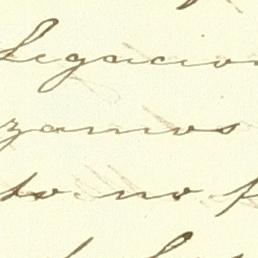 Legacion
zamos
to no f